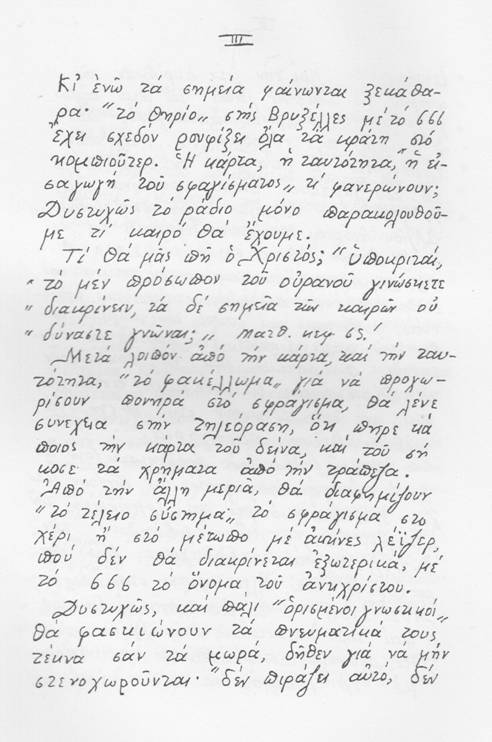 III
Κι ἐνῶ τά σημεία φαίνωνται ξεκάθα-
ρα· "τό θηρίο„ στής Βρυξέλλες μέ τό 666
ἔχει σχεδόν ρουφίξει ὅλα τά κράτη στό
κομπιοῦτερ. Ἡ κάρτα, ἡ ταυτότητα, "ἡ εἰ-
σαγωγή τοῦ σφαγίσματος„ τί φανερώνουν;
Δυστυχῶς τό ράδιο μόνο παρακολουθοῦ-
με τί καιρό θά ἔχουμε.
Τί θά μᾶς πῆ ὁ Χριστός; "ὑποκριταί,
"τό μέν πρόσωπον τοῦ οὐρανοῦ γινώσκετε
"διακρίνειν, τά δέ σημεῖα τῶν καιρῶν οὐ
"δύναστε γνῶναι;„ Ματθ. κεφ ΙΣ!
Μετά λοιπόν ἀπό τήν κάρτα, καί τήν ταυ-
τότητα, "τό φακέλλωμα„ γιά νά προχω-
ρίσουν πονηρά στό σφράγισμα, θά λένε
συνεχεια στήν τηλεόραση, ὅτι πηρε κά
ποιος τήν κάρτα τοῦ δείνα, καί τοῦ σή
κοσε τά χρηματα ἀπό τήν τράπεζα.
Ἀπό τήν ἄλλη μεριά, θά διαφημίζουν
"τό τέλειο σύστημα„ τό σφράγισμα στο
χέρι ἤ στό μέτωπο μέ ἀκτίνες λέϊζερ,
πού δέν θά διακρίνεται ἐξωτερικά, μέ
τό 666 τό ὄνομα τοῦ ἀντιχρίστου.
Δυστυχῶς, καί πάλι "ὁρισμένοι γνωστικοί„
θά φασκιώνουν τά πνευματικά τους
τέκνα σάν τά μωρά, δῆθεν γιά νά μήν
στενοχωροῦνται. "δέν πιράζει αὐτό, δέν